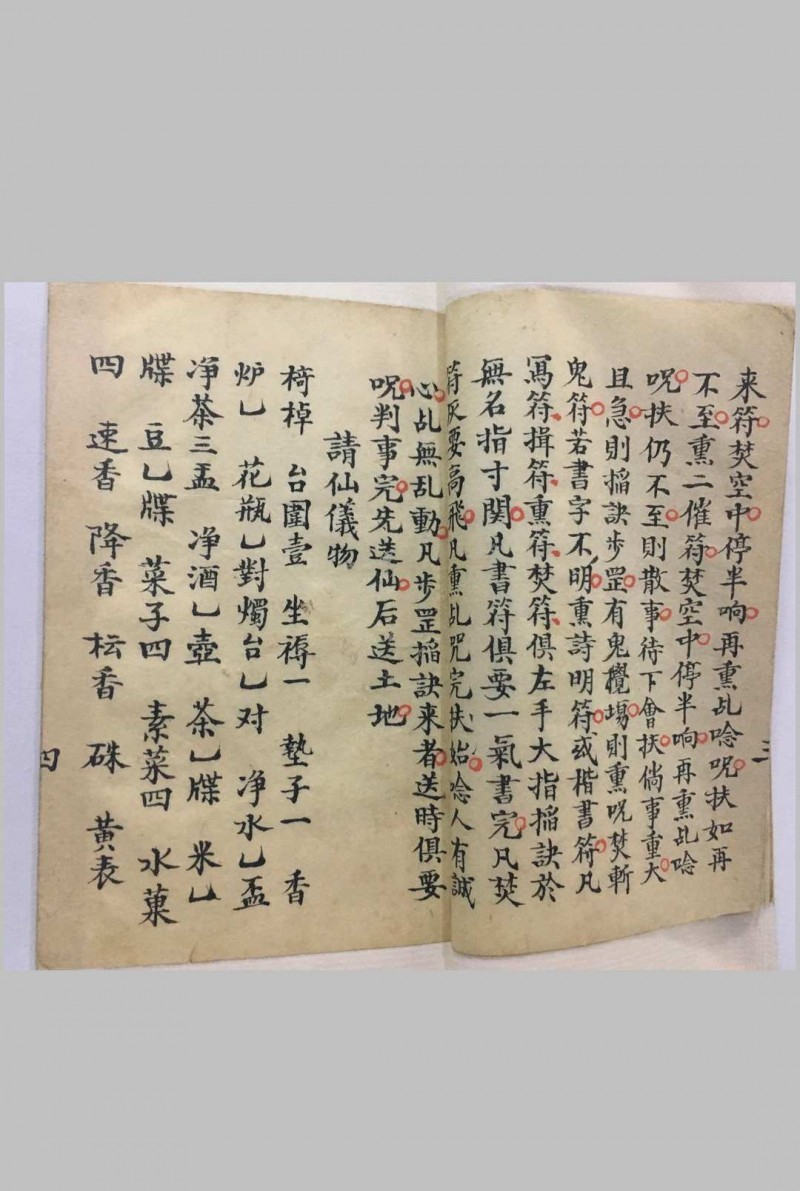 来符焚空中停半响再熏此唸呪扶如再
不至熏二催符焚空中停半响再熏此唸
呪扶仍不至則散事待下會扶倘事重大
且急則搯訣步罡有鬼攪場則熏呪焚斬
鬼符若書字不明熏詩明符或楷書符凡
寫符揖符熏符焚符俱左手大指搯訣於
無名指寸関凡書符俱要一氣書完凡焚
符灰要高飛凡熏此咒完扶始唸人有誠
心乱無乱動凡步罡搯訣来者送時俱要
呪判事完先送仙后送土地
三
請仙儀物
椅棹 台圍壹 坐褥一 墊子一 香
炉乚 花瓶乚對燭台乚对 净水乚盃
净茶三盃 净酒乚壺 茶乚牒 米乚
牒 豆乚牒 菜子四 素菜四 水菓
四 速香 降香 枟香 硃 黄表
四